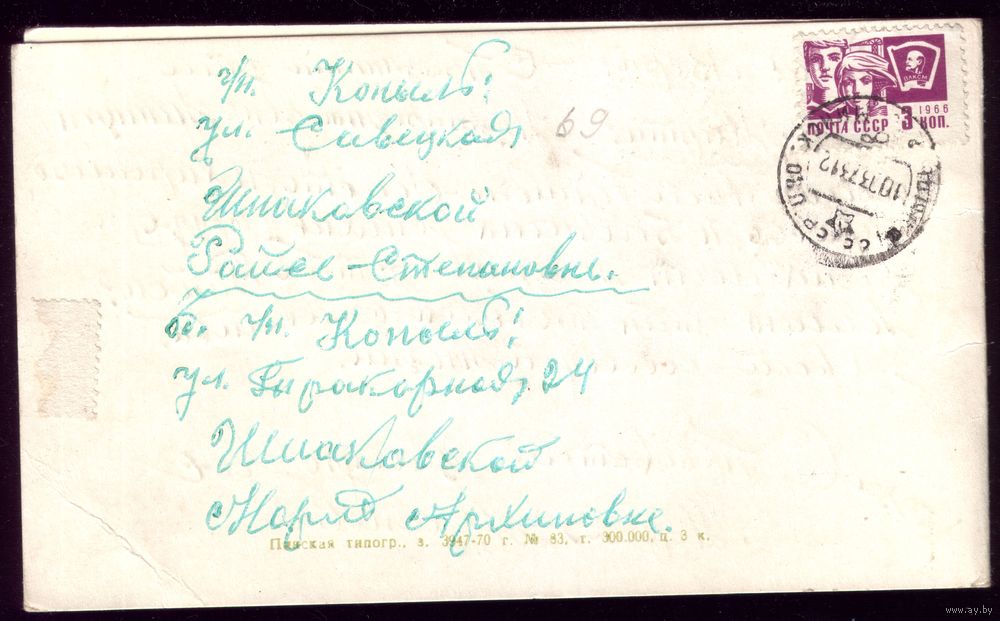 г/п. Копыль!
ул. Савецкая 69
Шпаковской
Раисе Степановне.
г/п. Копыль!
ул. 24
Шпаковской
Марии Архиповне.
Пинская типогр., з. 3947-70 г. № 83, т. 300.000, ц. 3 к.
ВЛКСМ
1966
ПОЧТА СССР 3 КОП.
www.ay.by